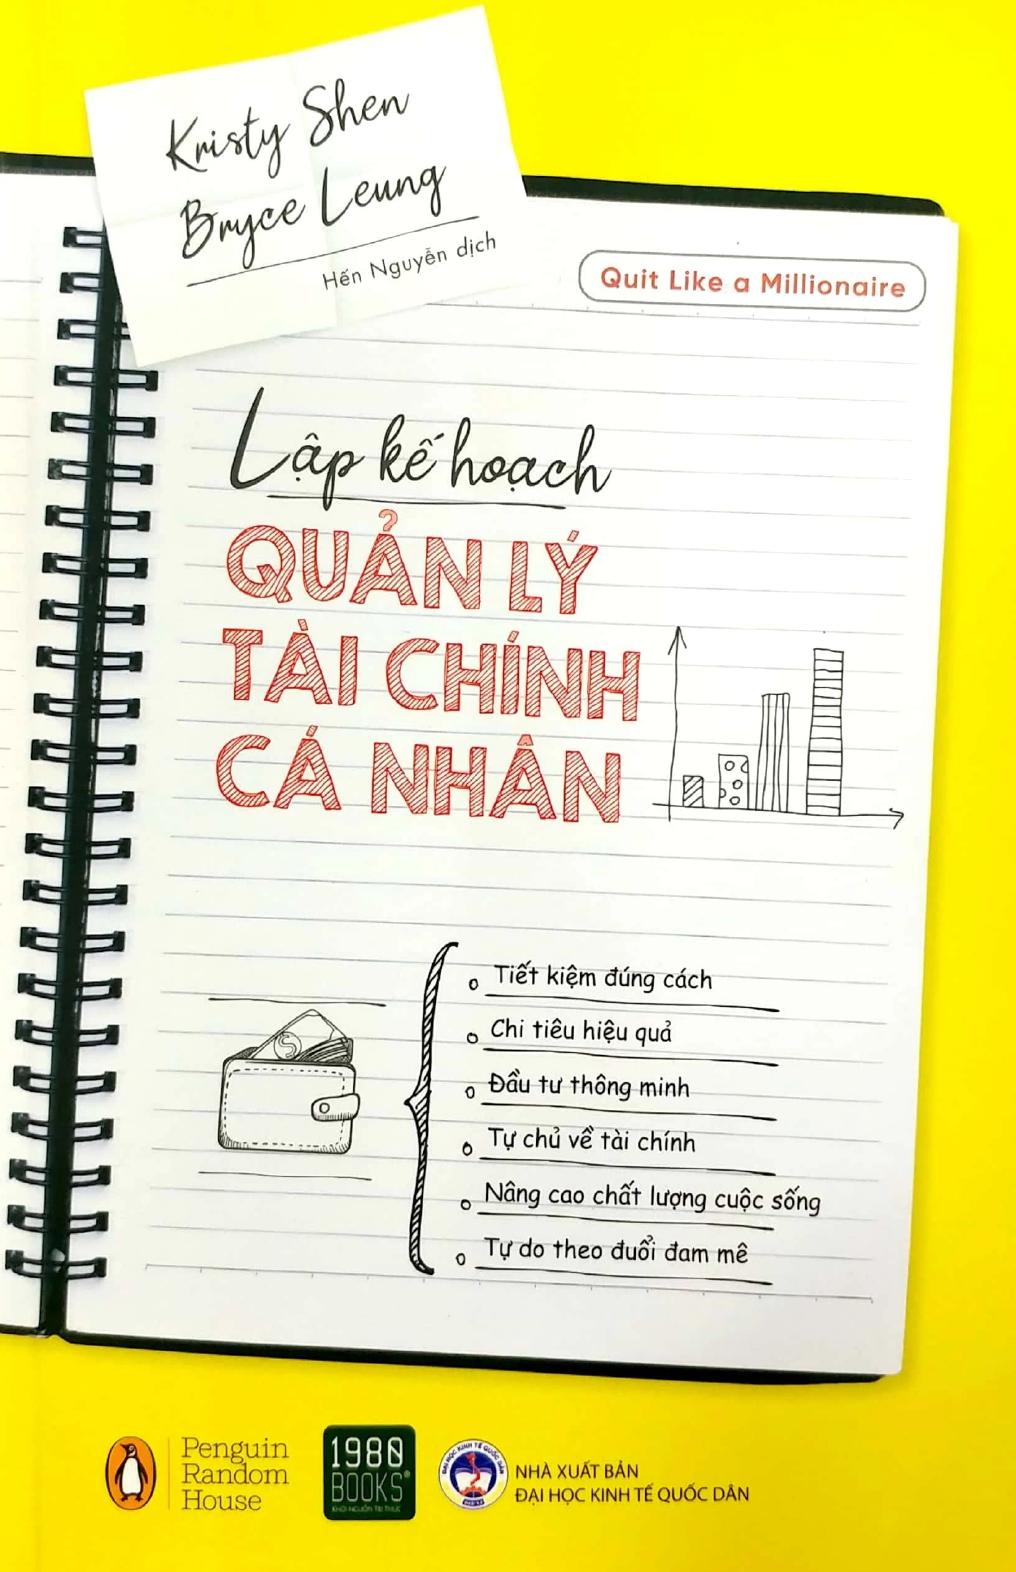 Kristy Shen
Bryce Leung
Hến Nguyễn dịch
Quit Like a Millionaire
Lập kế hoạch
QUẢN LÝ
TÀI CHÍNH
CÁ NHÂN
Tiết kiệm đúng cách
Chi tiêu hiệu quả
Đầu tư thông minh
Tự chủ về tài chính
Nâng cao chất lượng cuộc sống
Tự do theo đuổi đam mê
Penguin
Random
House
1980
BOOKS®
KHƠI NGUỒN TRI THỨC
ĐẠI HỌC KINH TẾ QUỐC DÂN
NHÀ XUẤT BẢN
ĐẠI HỌC KINH TẾ QUỐC DÂN